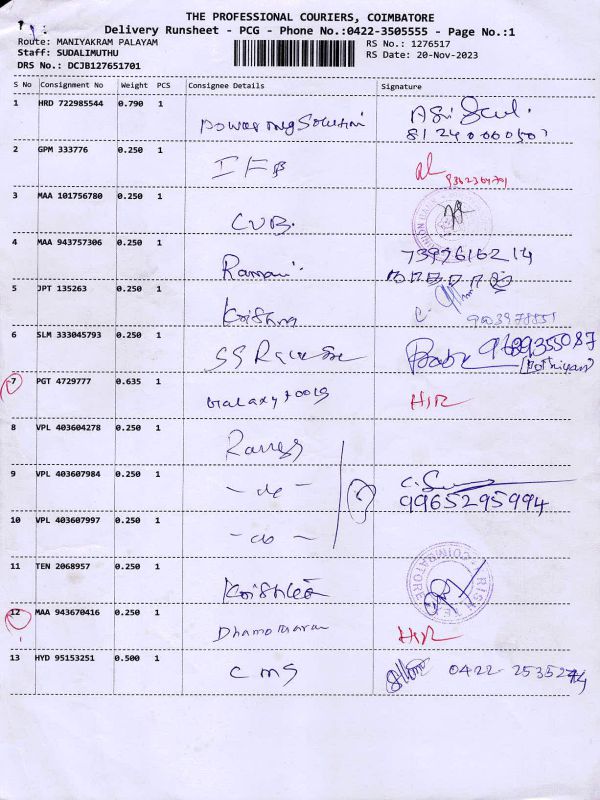 THE PROFESSIONAL COURIERS, COIMBATORE
Delivery Runsheet - PCG - Phone No.:0422-3505555 - Page No.:1
Route: MANIYAKRAM PALAYAM RS No.: 1276517
Staff: SUDALIMUTHU RS Date: 20-Nov-2023
DRS No.: DCJB127651701
S No Consignment No Weight PCS Consignee Details Signature
1 HRD 722985544 0.790 1
2 GPM 333776 0.250 1 IFB
3 MAA 101756780 0.250 1 CUB.
4 MAA 943757306 0.250 1 Ramani 7397616214
5 JPT 135263 0.250 1 Krishna
6 SLM 333045793 0.250 1
7 PGT 4729777 0.635 1 Galaxy tools H/R
8 VPL 403604278 0.250 1
9 VPL 403607984 0.250 1 - do - 9965295994
10 VPL 403607997 0.250 1 - do -
11 TEN 2068957 0.250 1
COIMBATORE
12 MAA 943670416 0.250 1 Dhamotharan H/R
13 HYD 95153251 0.500 1 CMS